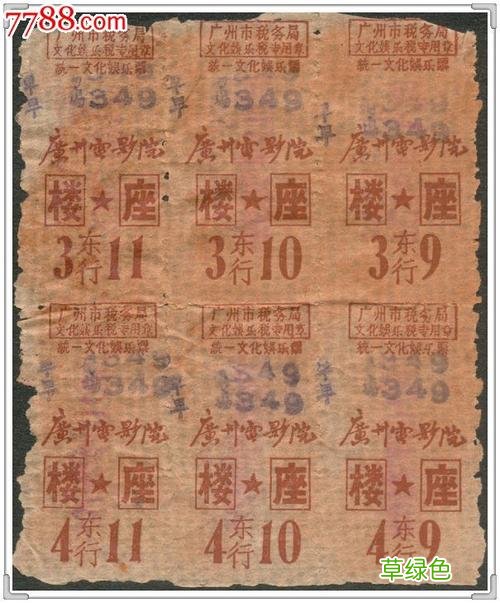 7788.com
广州市税务局 广州市税务局 广州市税务局
文化娱乐税专用章 文化娱乐税专用章 文化娱乐税专用章
统一文化娱乐票 统一文化娱乐票 统一文化娱乐票
4349 4349 4349
廣州電影院 廣州電影院 廣州電影院
楼★座 楼★座 楼★座
3东行11 3东行10 3东行9
广州市税务局 广州市税务局 广州市税务局
文化娱乐税专用章 文化娱乐税专用章 文化娱乐税专用章
统一文化娱乐票 统一文化娱乐票 统一文化娱乐票
4349 4349 4349
廣州電影院 廣州電影院 廣州電影院
楼★座 楼★座 楼★座
4东行11 4东行10 4东行9
草绿色